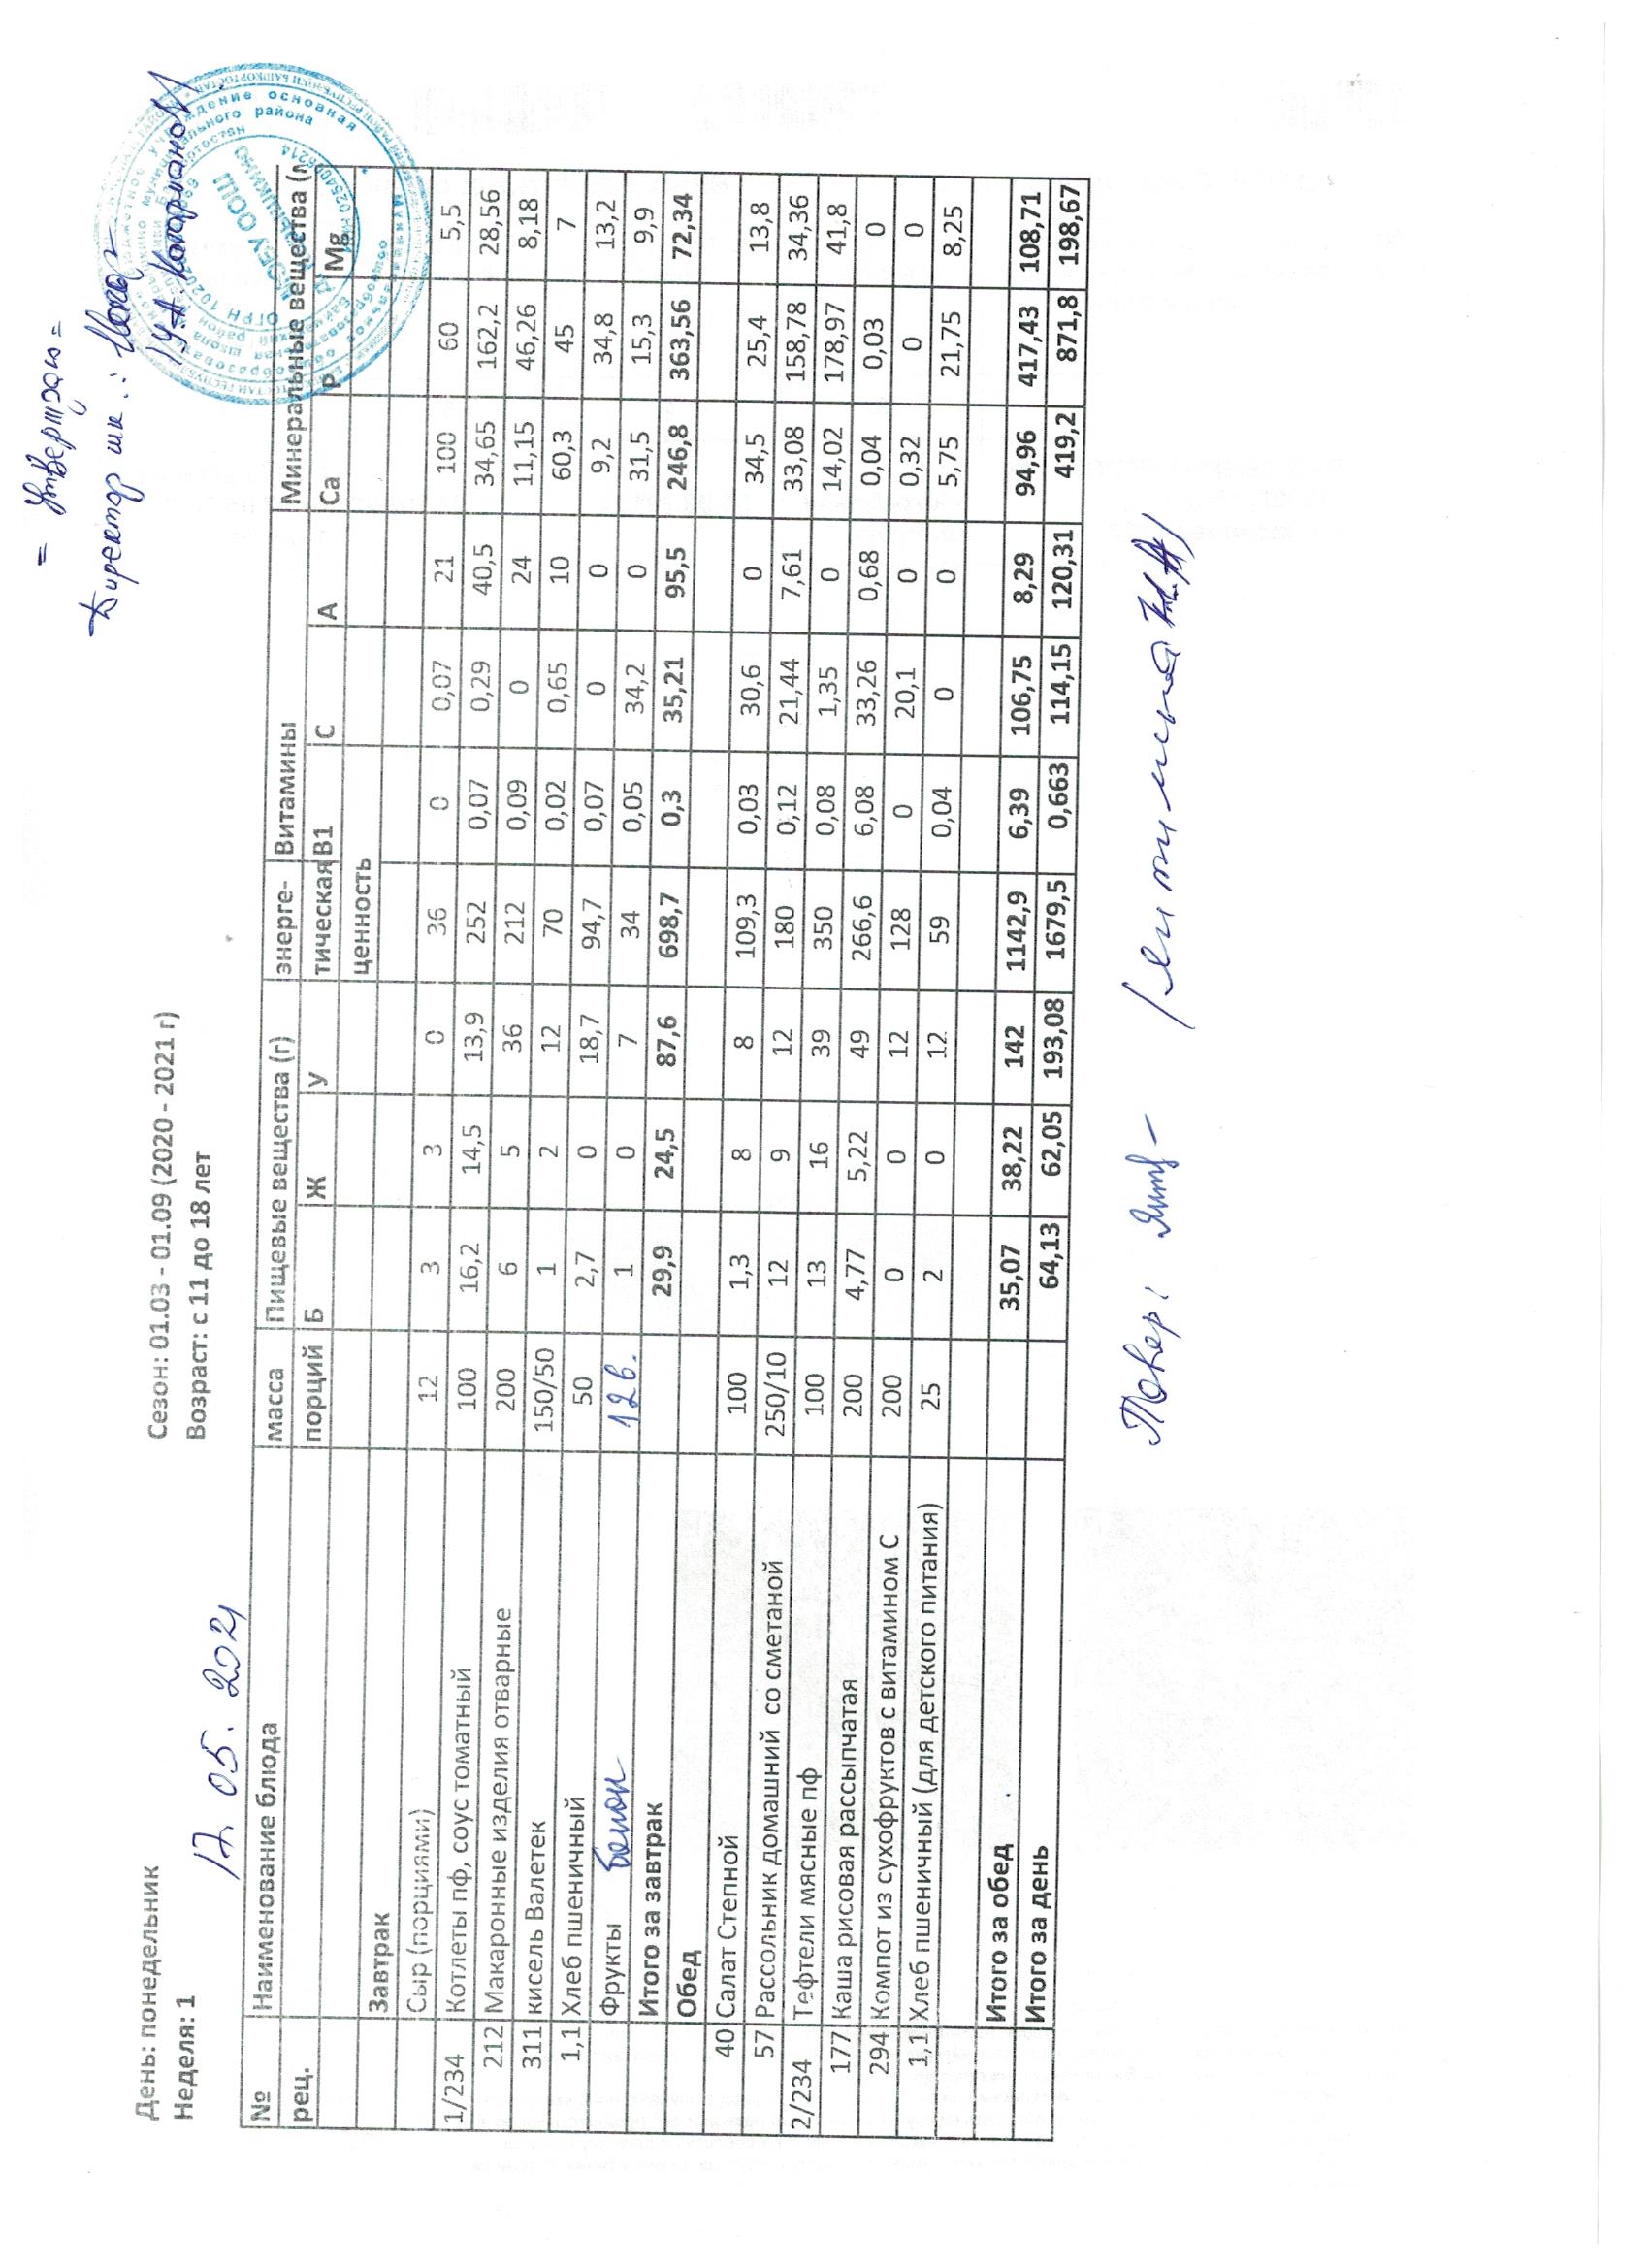 = Утверждаю =
Директор шк.:
День: понедельник
Сезон: 01.03 - 01.09 (2020 - 2021 г)
Неделя: 1
Возраст: с 11 до 18 лет
17. 05. 2021
№ Наименование блюда масса Пищевые вещества (г) энерге- Витамины Минеральные вещества (м
рец. порций Б Ж У тическая В1 С А Са Р Mg
ценность
Завтрак
Сыр (порциями) 12 3 3 0 36 0 0,07 21 100 60 5,5
1/234 Котлеты пф, соус томатный 100 16,2 14,5 13,9 252 0,07 0,29 40,5 34,65 162,2 28,56
212 Макаронные изделия отварные 200 6 5 36 212 0,09 0 24 11,15 46,26 8,18
311 кисель Валетек 150/50 1 2 12 70 0,02 0,65 10 60,3 45 7
1,1 Хлеб пшеничный 50 2,7 0 18,7 94,7 0,07 0 0 9,2 34,8 13,2
Фрукты 1 0 7 34 0,05 34,2 0 31,5 15,3 9,9
Итого за завтрак 29,9 24,5 87,6 698,7 0,3 35,21 95,5 246,8 363,56 72,34
Обед
40 Салат Степной 100 1,3 8 8 109,3 0,03 30,6 0 34,5 25,4 13,8
57 Рассольник домашний со сметаной 250/10 12 9 12 180 0,12 21,44 7,61 33,08 158,78 34,36
2/234 Тефтели мясные пф 100 13 16 39 350 0,08 1,35 0 14,02 178,97 41,8
177 Каша рисовая рассыпчатая 200 4,77 5,22 49 266,6 6,08 33,26 0,68 0,04 0,03 0
294 Компот из сухофруктов с витамином С 200 0 0 12 128 0 20,1 0 0,32 0 0
1,1 Хлеб пшеничный (для детского питания) 25 2 0 12 59 0,04 0 0 5,75 21,75 8,25
Итого за обед 35,07 38,22 142 1142,9 6,39 106,75 8,29 94,96 417,43 108,71
Итого за день 64,13 62,05 193,08 1679,5 0,663 114,15 120,31 419,2 871,8 198,67
Повар: